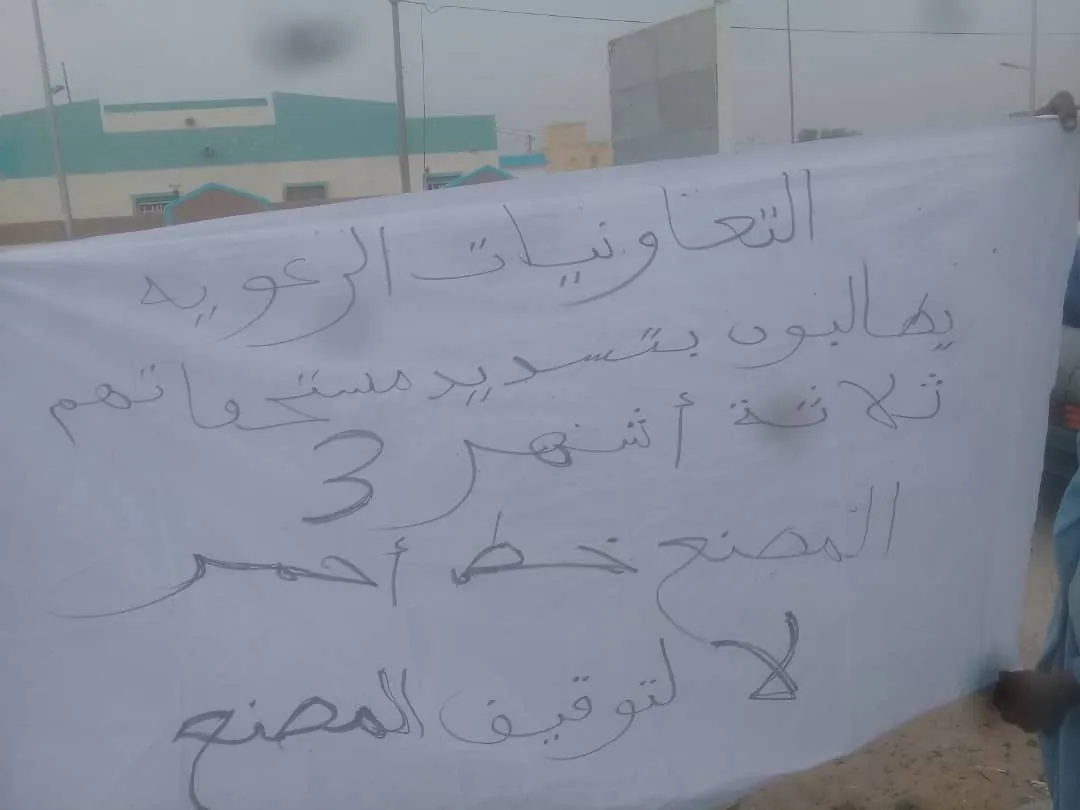 التعاونيات الرعويه
يطالبون بتسديد مستحقاتهم
ثلاثة أشهر 3
المصنع خط أحمر
لا لتوقيف المصنع